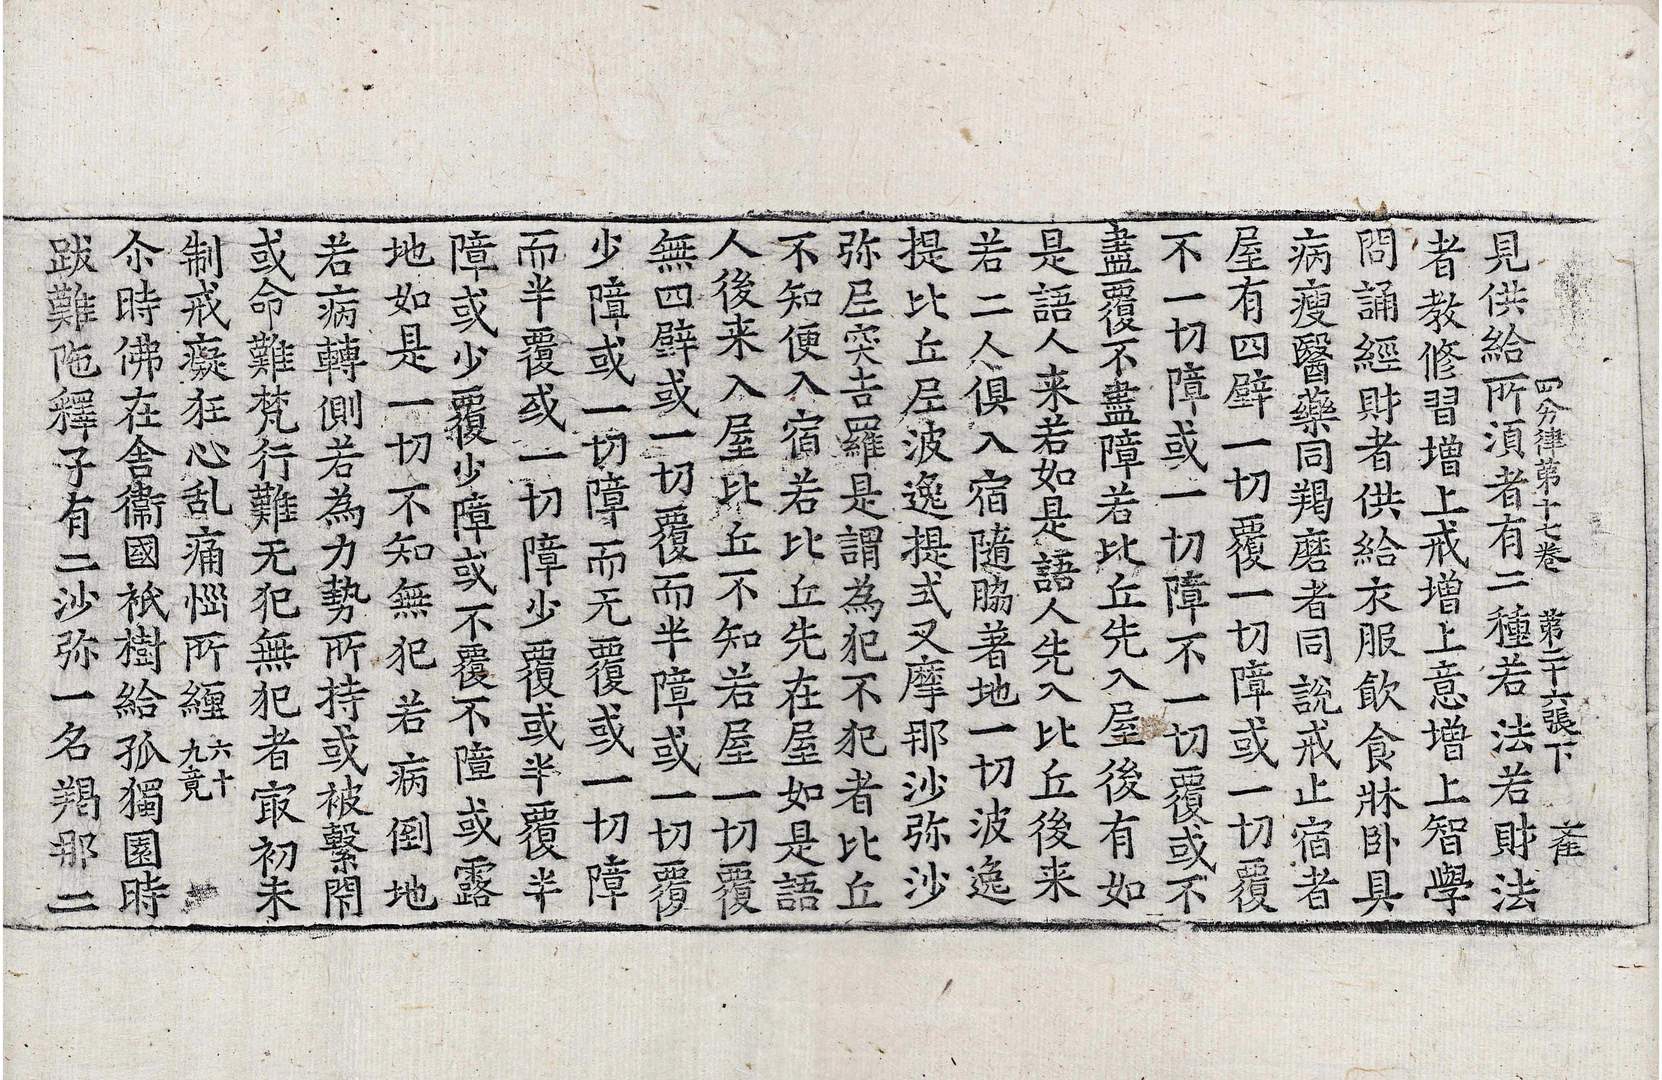 四分律第十七卷 第二十六張下 萑
見供給所湏者有二種若法若財法
者教修習增上戒增上意增上智學
問誦經財者供給衣服飲食牀卧具
病瘦醫藥同羯磨者同説戒止宿者
屋有四壁一切覆一切障或一切覆
不一切障或一切障不一切覆或不
盡覆不盡障若比丘先入屋後有如
是語人来若如是語人先入比丘後来
若二人俱入宿隨脇著地一切波逸
提比丘尼波逸提式叉摩那沙弥沙
弥尼突吉羅是謂為犯不犯者比丘
不知便入宿若比丘先在屋如是語
人後来入屋比丘不知若屋一切覆
無四壁或一切覆而半障或一切覆
少障或一切障而无覆或一切障
而半覆或一切障少覆或半覆半
障或少覆少障或不覆不障或露
地如是一切不知無犯若病倒地
若病轉側若為力勢所持或被繫閇
或命難梵行難无犯無犯者㝡初未
制戒癡狂心乱痛惱所纏六十九竟
尒時佛在舍衞國祇樹給孤獨園時
跋難陁釋子有二沙弥一名羯那二